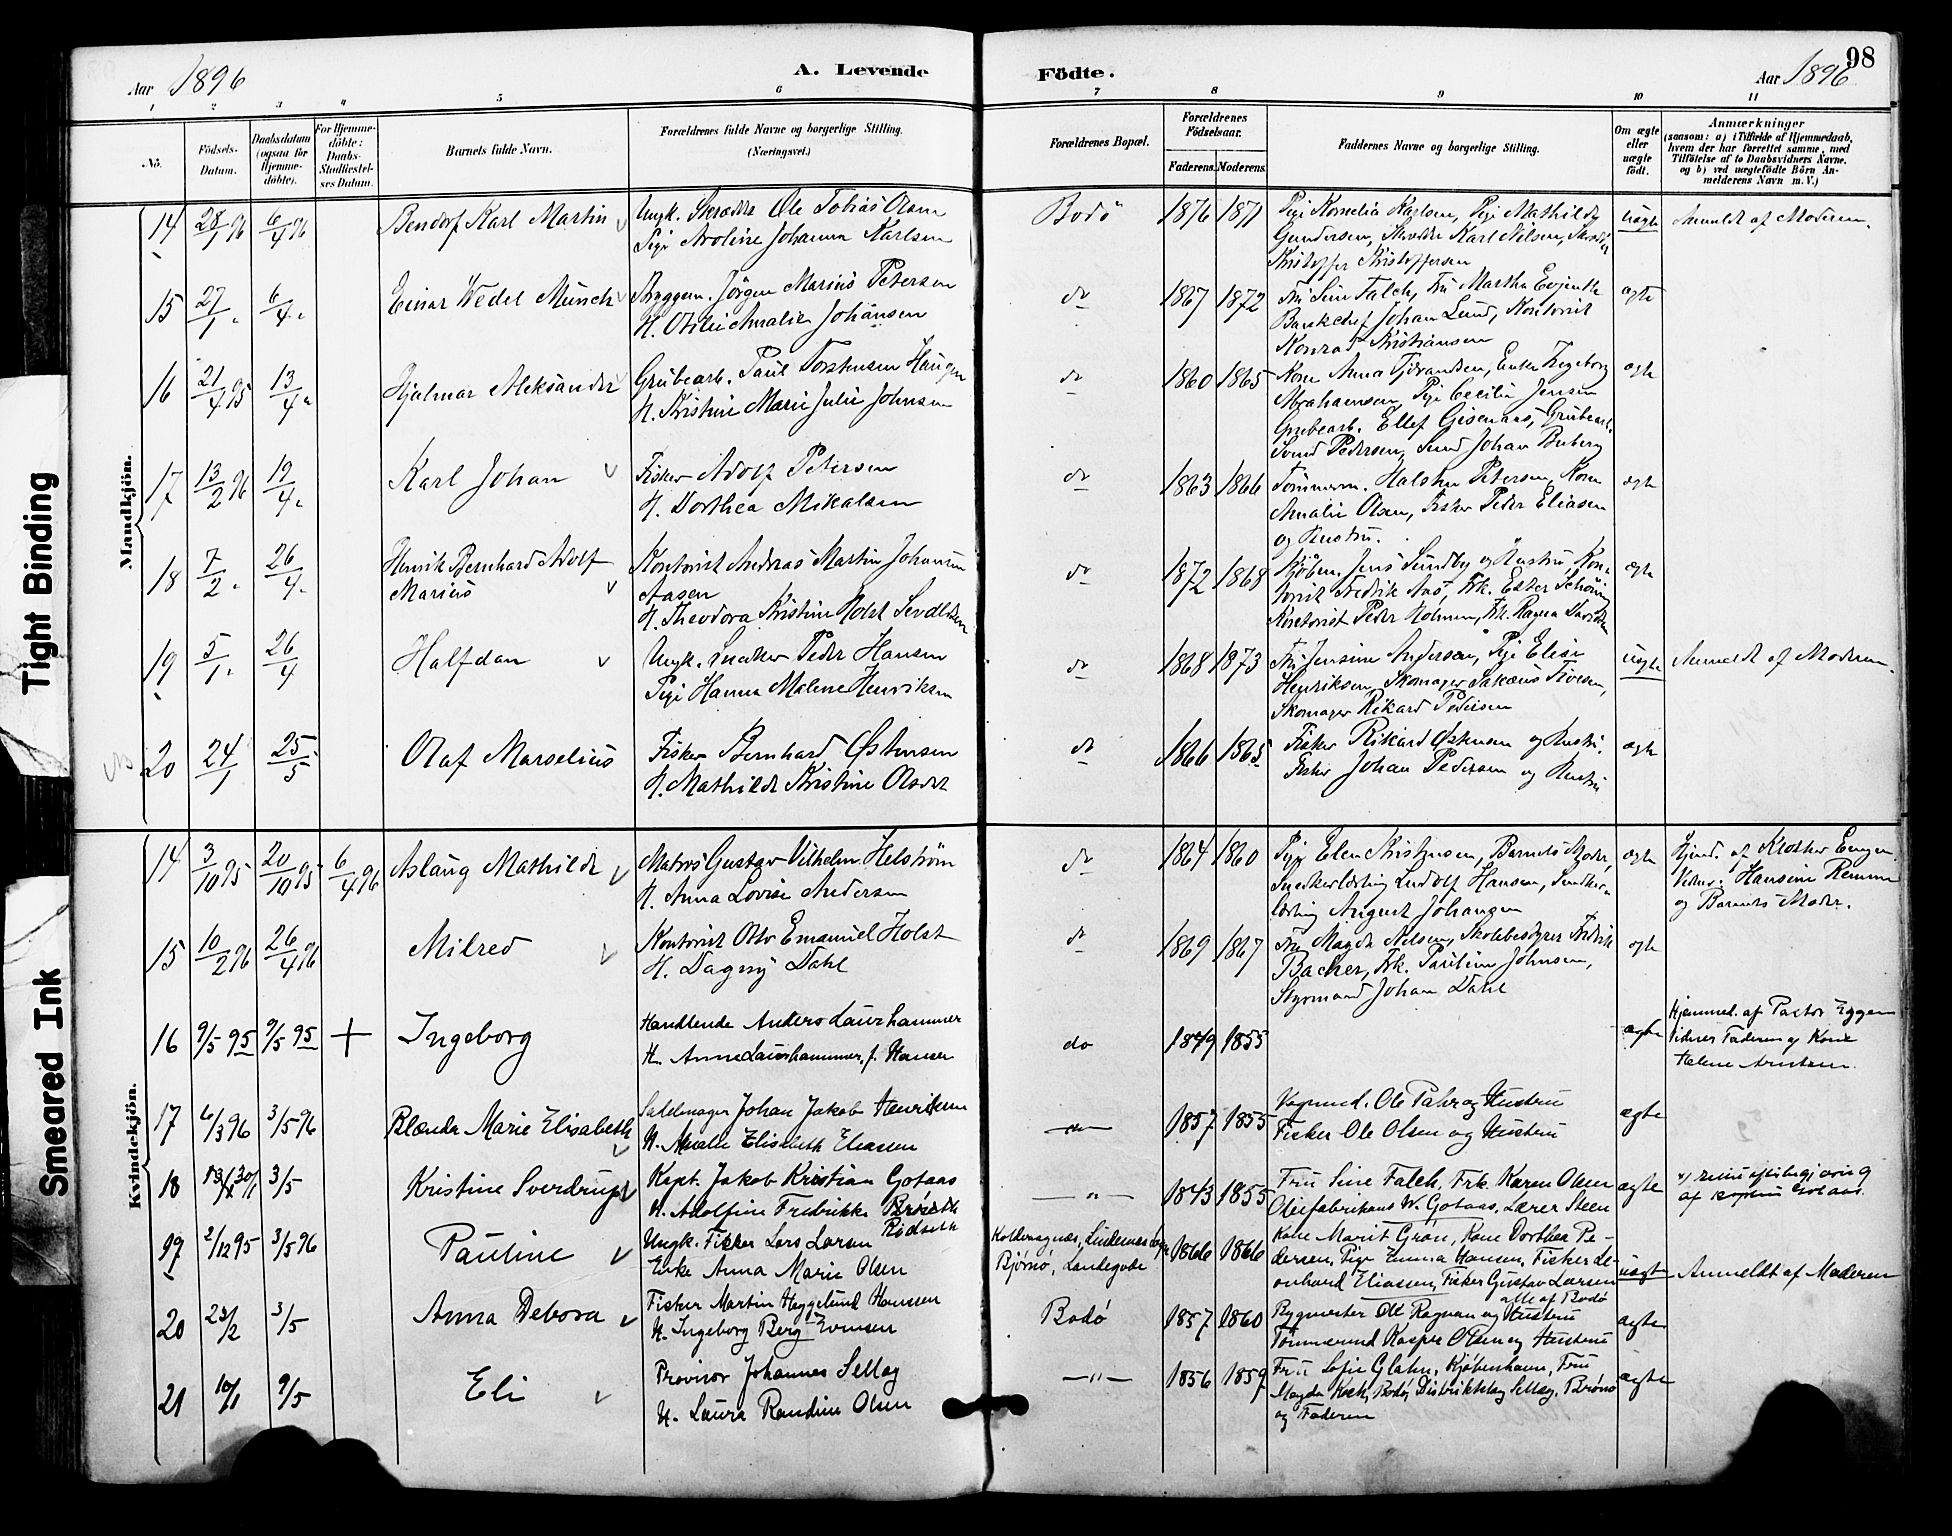 98
Aar 1896
A. Levende
Födte.
Aar 1896
1 2 3 4 5 6 7 8 9 10 11
No.
Födsels-Datum.
Daabsdatum (ogsaa för Hjemme-döbte).
For Hjemme-döbte: Daabs-Stadfæstel-ses Datum.
Barnets fulde Navn.
Forældrenes fulde Navne og borgerlige Stilling.
(Næringsvei.)
Forældrenes Bopæl.
Forældrenes Födselsaar.
Faderens. Moderens.
Faddernes Navne og borgerlige Stilling.
Om ægte eller uægte födt.
Anmærkninger
(saasom: a) i Tilfælde af Hjemmedaab,
hvem der har forrettet samme, med
Tilföielse af to Daabsvidners Navne,
og b) ved uægtefödte Börn An-
melderens Navn m. V.)
Tight Binding
Smeared Ink
Mandkjön.
14 28/1 96 6/4 96 Bendorf Karl Martin
Ungk. Skrædder Ole Tobias Olsen
Pige Aroline Johanna Karlsen
Bodö 1876 1871
Pige Kornelia Karlsen, Pige Mathilde
Gundersen, Skrædder Karl Nilsen, Skrædder
Kristoffer Kristoffersen
uægte Anmeldt af Moderen.
15 27/1 " 6/4 " Einar Wedel Münch
Bryggem. Jörgen Marius Petersen
H. Otilie Amalie Johansen
do 1867 1872
Fru Sine Falch, Fru Martha Evjenth
Bankchef Johan Lund, Kontorist
Konrad Kristiansen
ægte
16 21/4 95 13/4 " Hjalmar Aleksander
Grubearb. Paul Torstensen Haugen
H. Kristine Marie Julie Johnsen
do 1860 1865
Kone Anna Tjörandsen, Enke Ingeborg
Abrahamsen, Pige Cecilie Jensen
Grubearb. Ellef Gisenaas, Grubearb.
Svend Pedersen, Smed Johan Buberg
ægte
17 13/2 96 19/4 " Karl Johan
Fisker Adolf Petersen
H. Dorthea Mikalsen
do 1863 1866
Tömmerm. Halsten Petersen, Kone
Amalie Olsen, Fisker Peder Eliasen
og Hustru.
ægte
18 7/2 " 26/4 " Henrik Bernhard Adolf
Marius
Kontorist Andreas Martin Johansen
Aasen
H. Theodora Kristine Holst
do 1872 1868
Kjöbm. Jens Sundby og Hustru, Kon-
torist Fredrik Aas, Frk. Ester Schöning
Kontorist Peder Holmen, Frk. Ragna Davidsen
ægte
19 5/1 " 26/4 Halfdan
Ungk. Snedker Peder Hansen
Pige Hanna Malene Henriksen
do 1868 1873
Fru Jensine Andersen, Pige Elise
Henriksen, Skomager Sakæus Iversen,
Skomager Rikard Pedersen
uægte Anmeldt af Moderen.
20 24/1 25/5 Olaf Marselius
Fisker Bernhard Østensen
H. Mathilde Kristine Olsdtr
do 1866 1865
Fisker Rikard Østensen og Hustru.
Fisker Johan Pedersen og Hustru
ægte
Kvindekjön.
14 3/10 95 20/10 95 6/4 96 Aslaug Mathilde
Matros Gustav Vilhelm Helström
H. Anna Lovise Andersen
do 1864 1860
Pige Elen Kristensen, Barnets Moder,
Snedkerlærling Ludolf Hansen, Snedker-
lærling August Johansen
ægte
Hjemd. af Klokker Engen.
Vidner: Hansine Remme
og Barnets Moder.
15 10/2 96 26/4 96 Milred
Kontorist Otto Emanuel Holst
H. Dagny Dahl
do 1869 1867
Fru Magda Nilsen, Skolebestyrer Fredrik
Bacher, Frk. Pauline Johnsen,
Styrmand Johan Dahl
ægte
16 9/5 95 9/5 95 + Ingeborg
Handlende Anders Laurhammer
H. Anne Laurhammer f. Hansen
do 1849 1855
ægte
Hjemmed. af Pastor Eggen
Vidner Faderen og Kone
Helene Arntsen.
17 6/3 96 3/5 96 Blænda Marie Elisabeth
Sadelmager Johan Jakob Henriksen
H. Amalie Elisabeth Eliassen
do 1857 1855
Vognmd. Ole Pahr og Hustru
Fisker Ole Olsen og Hustru
ægte
18 3/5 Kristine Sverdrup
Kapt. Jakob Kristian Gotaas
H. Adolfine Fredrikke Rödseth
" 1843 1855
Fru Sine Falch, Frk. Karen Olsen
Oliefabrikant W. Gotaas, Lærer Steen
ægte
af Kaptein Gotaas.
19 2/12 95 3/5 96 Pauline
Ungk. Fisker Lars Larsen
Enke Anna Marie Olsen
Bjørnö, Landegode
1866 1866
Kone Marit Grön, Kone Dorthea Pe-
dersen, Pige Emma Hansen, Fisker Le-
onhard Eliassen, Fisker Gustav Larsen
alle af Bodö
uægte Anmeldt af Moderen
20 23/2 3/5 Anna Debora
Fisker Martin Heggelund Hanssen
H. Ingeborg Berg Evensen
Bodö 1857 1860
Bygmester Ole Rognan og Hustru
Tömmermd Kasper Olsen og Hustru
ægte
21 10/1 9/5 Eli
Provisor Johannes Sellæg
H. Laura Randine Olsen
" 1856 1859
Fru Sofie Glahn, Kjöbenhavn, Fru
Magda Koch, Bodö, Distriktslæg Sellæg, Brönö
og Faderen
ægte